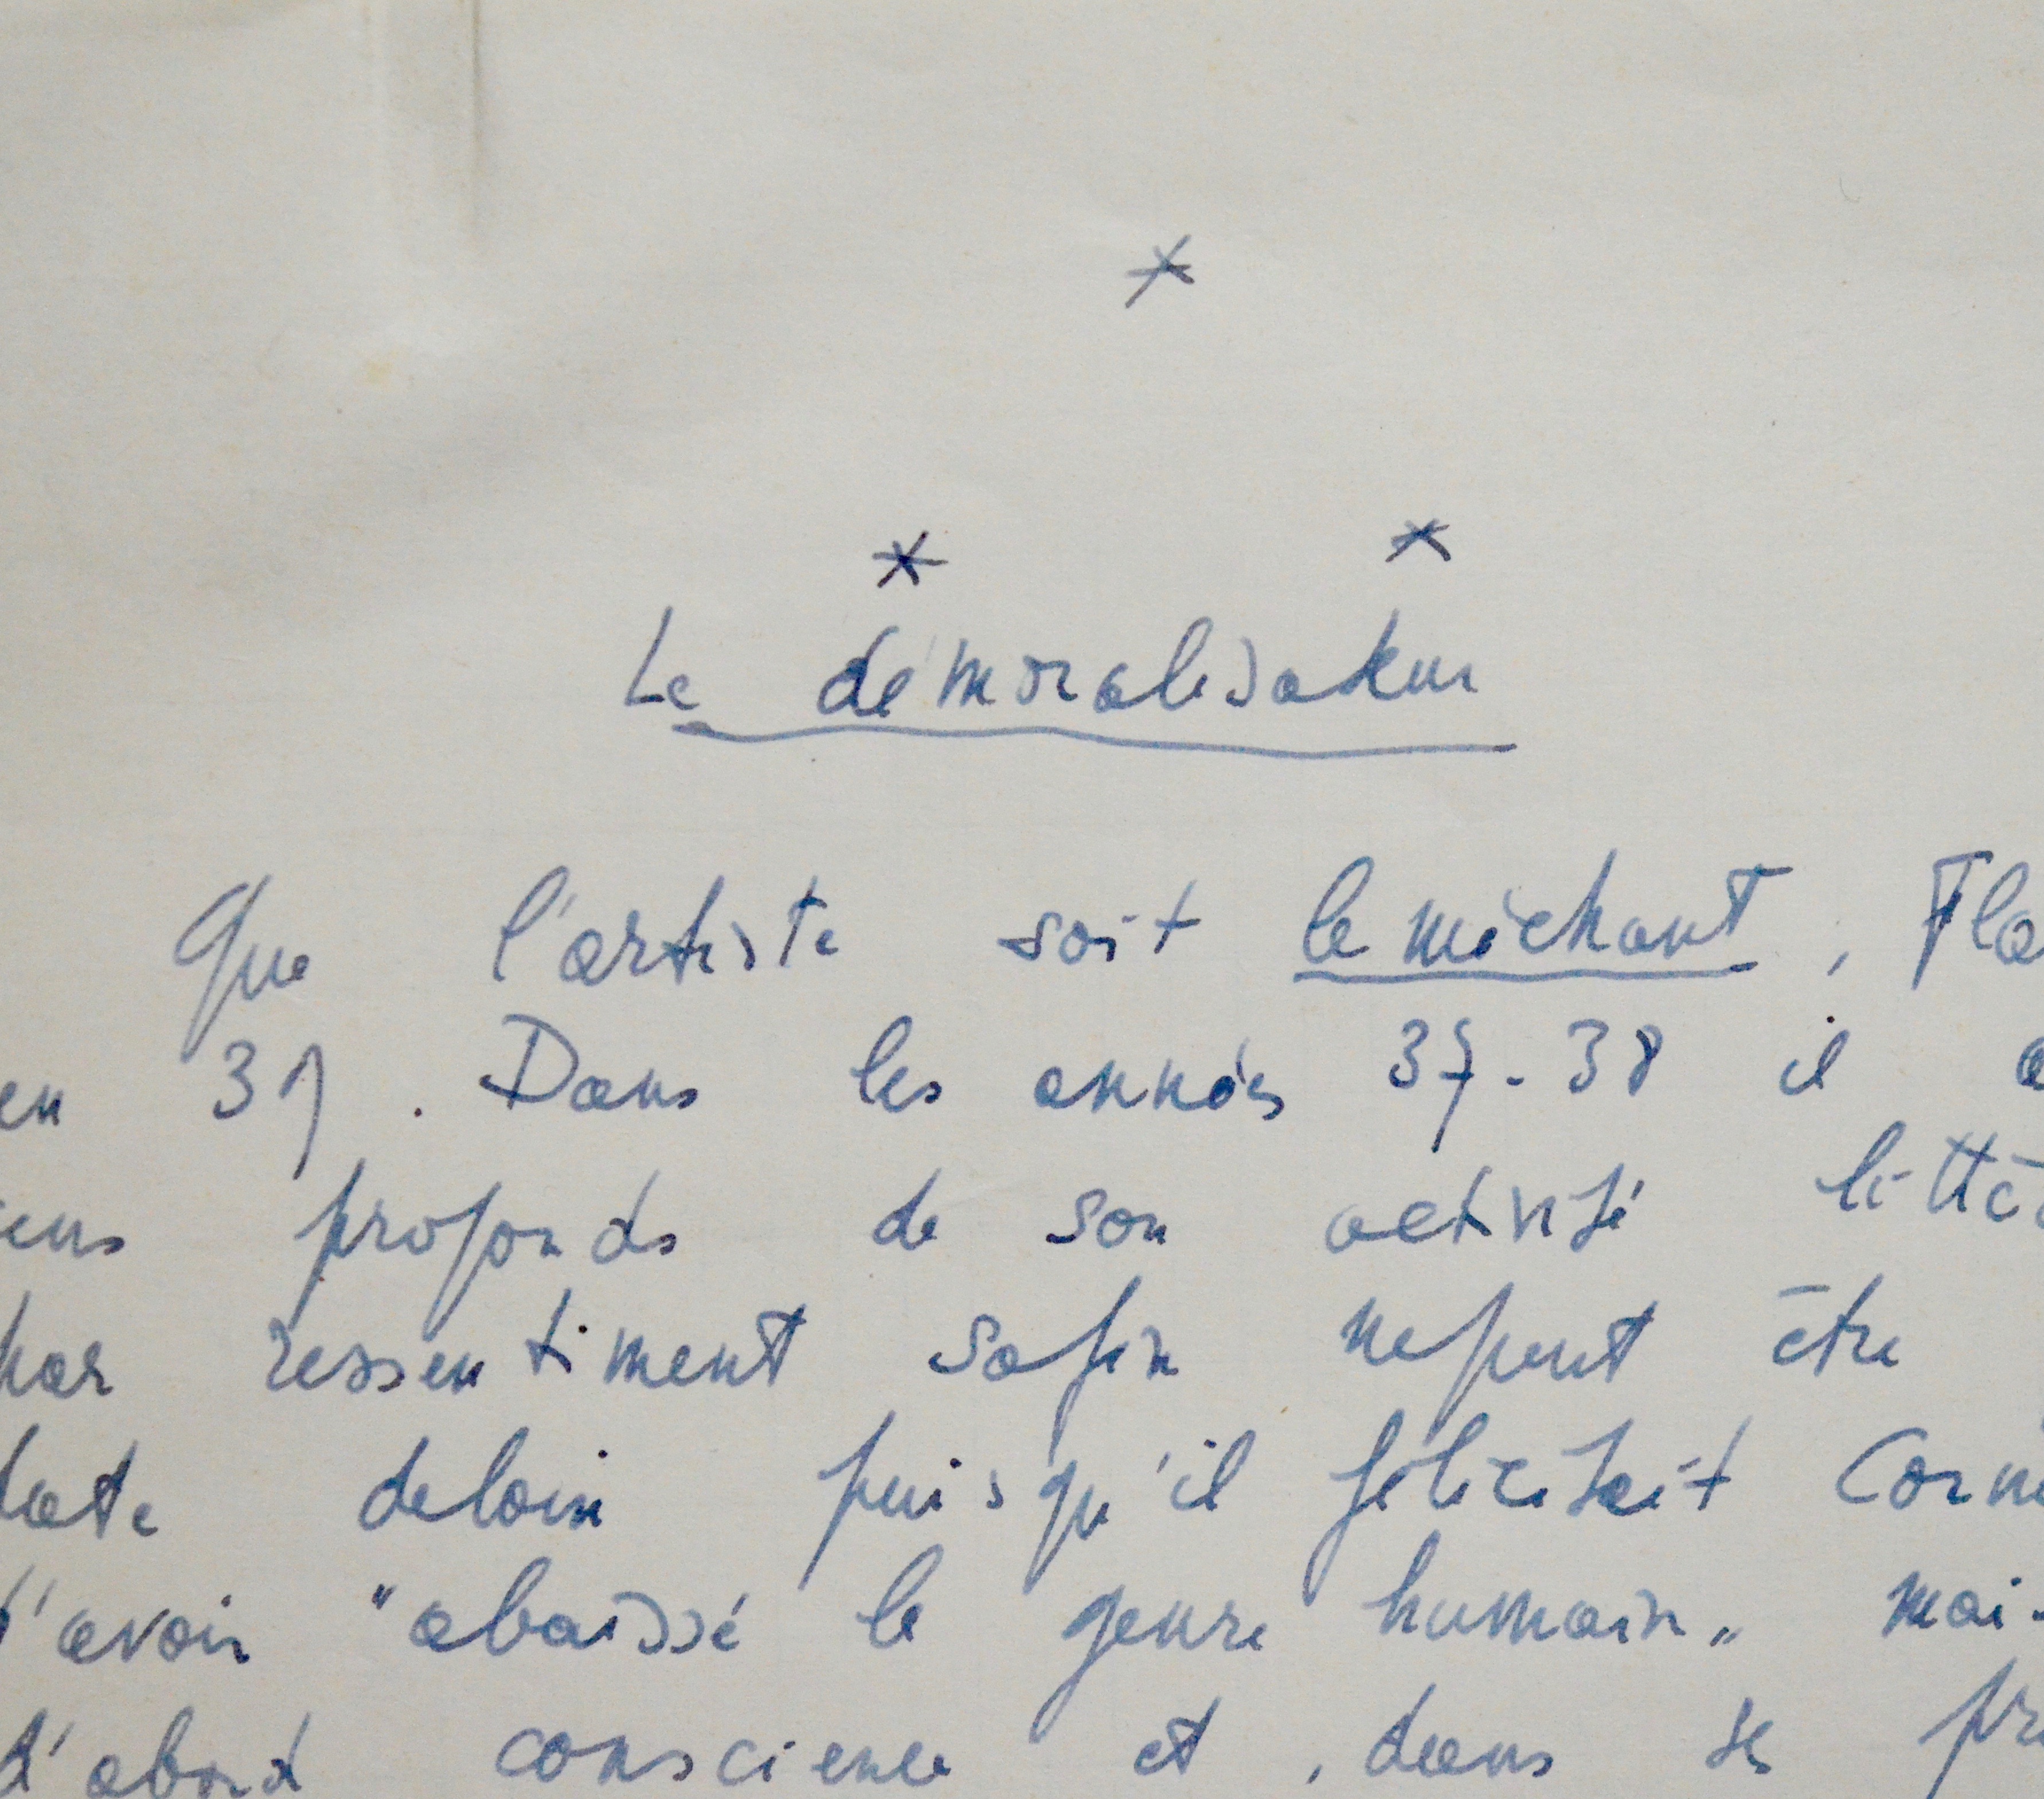 *
* *
Le démoralisateur
Que l'artiste soit le méchant, Fla
en 39. Dans les années 37-38 il a
profonds de son activité litté
par ressentiment satin ne peut être
date de loin puisqu'il félicitait Corne
d'avoir "abaissé le genre humain" mai
d'abord conscience et, dans ses pre